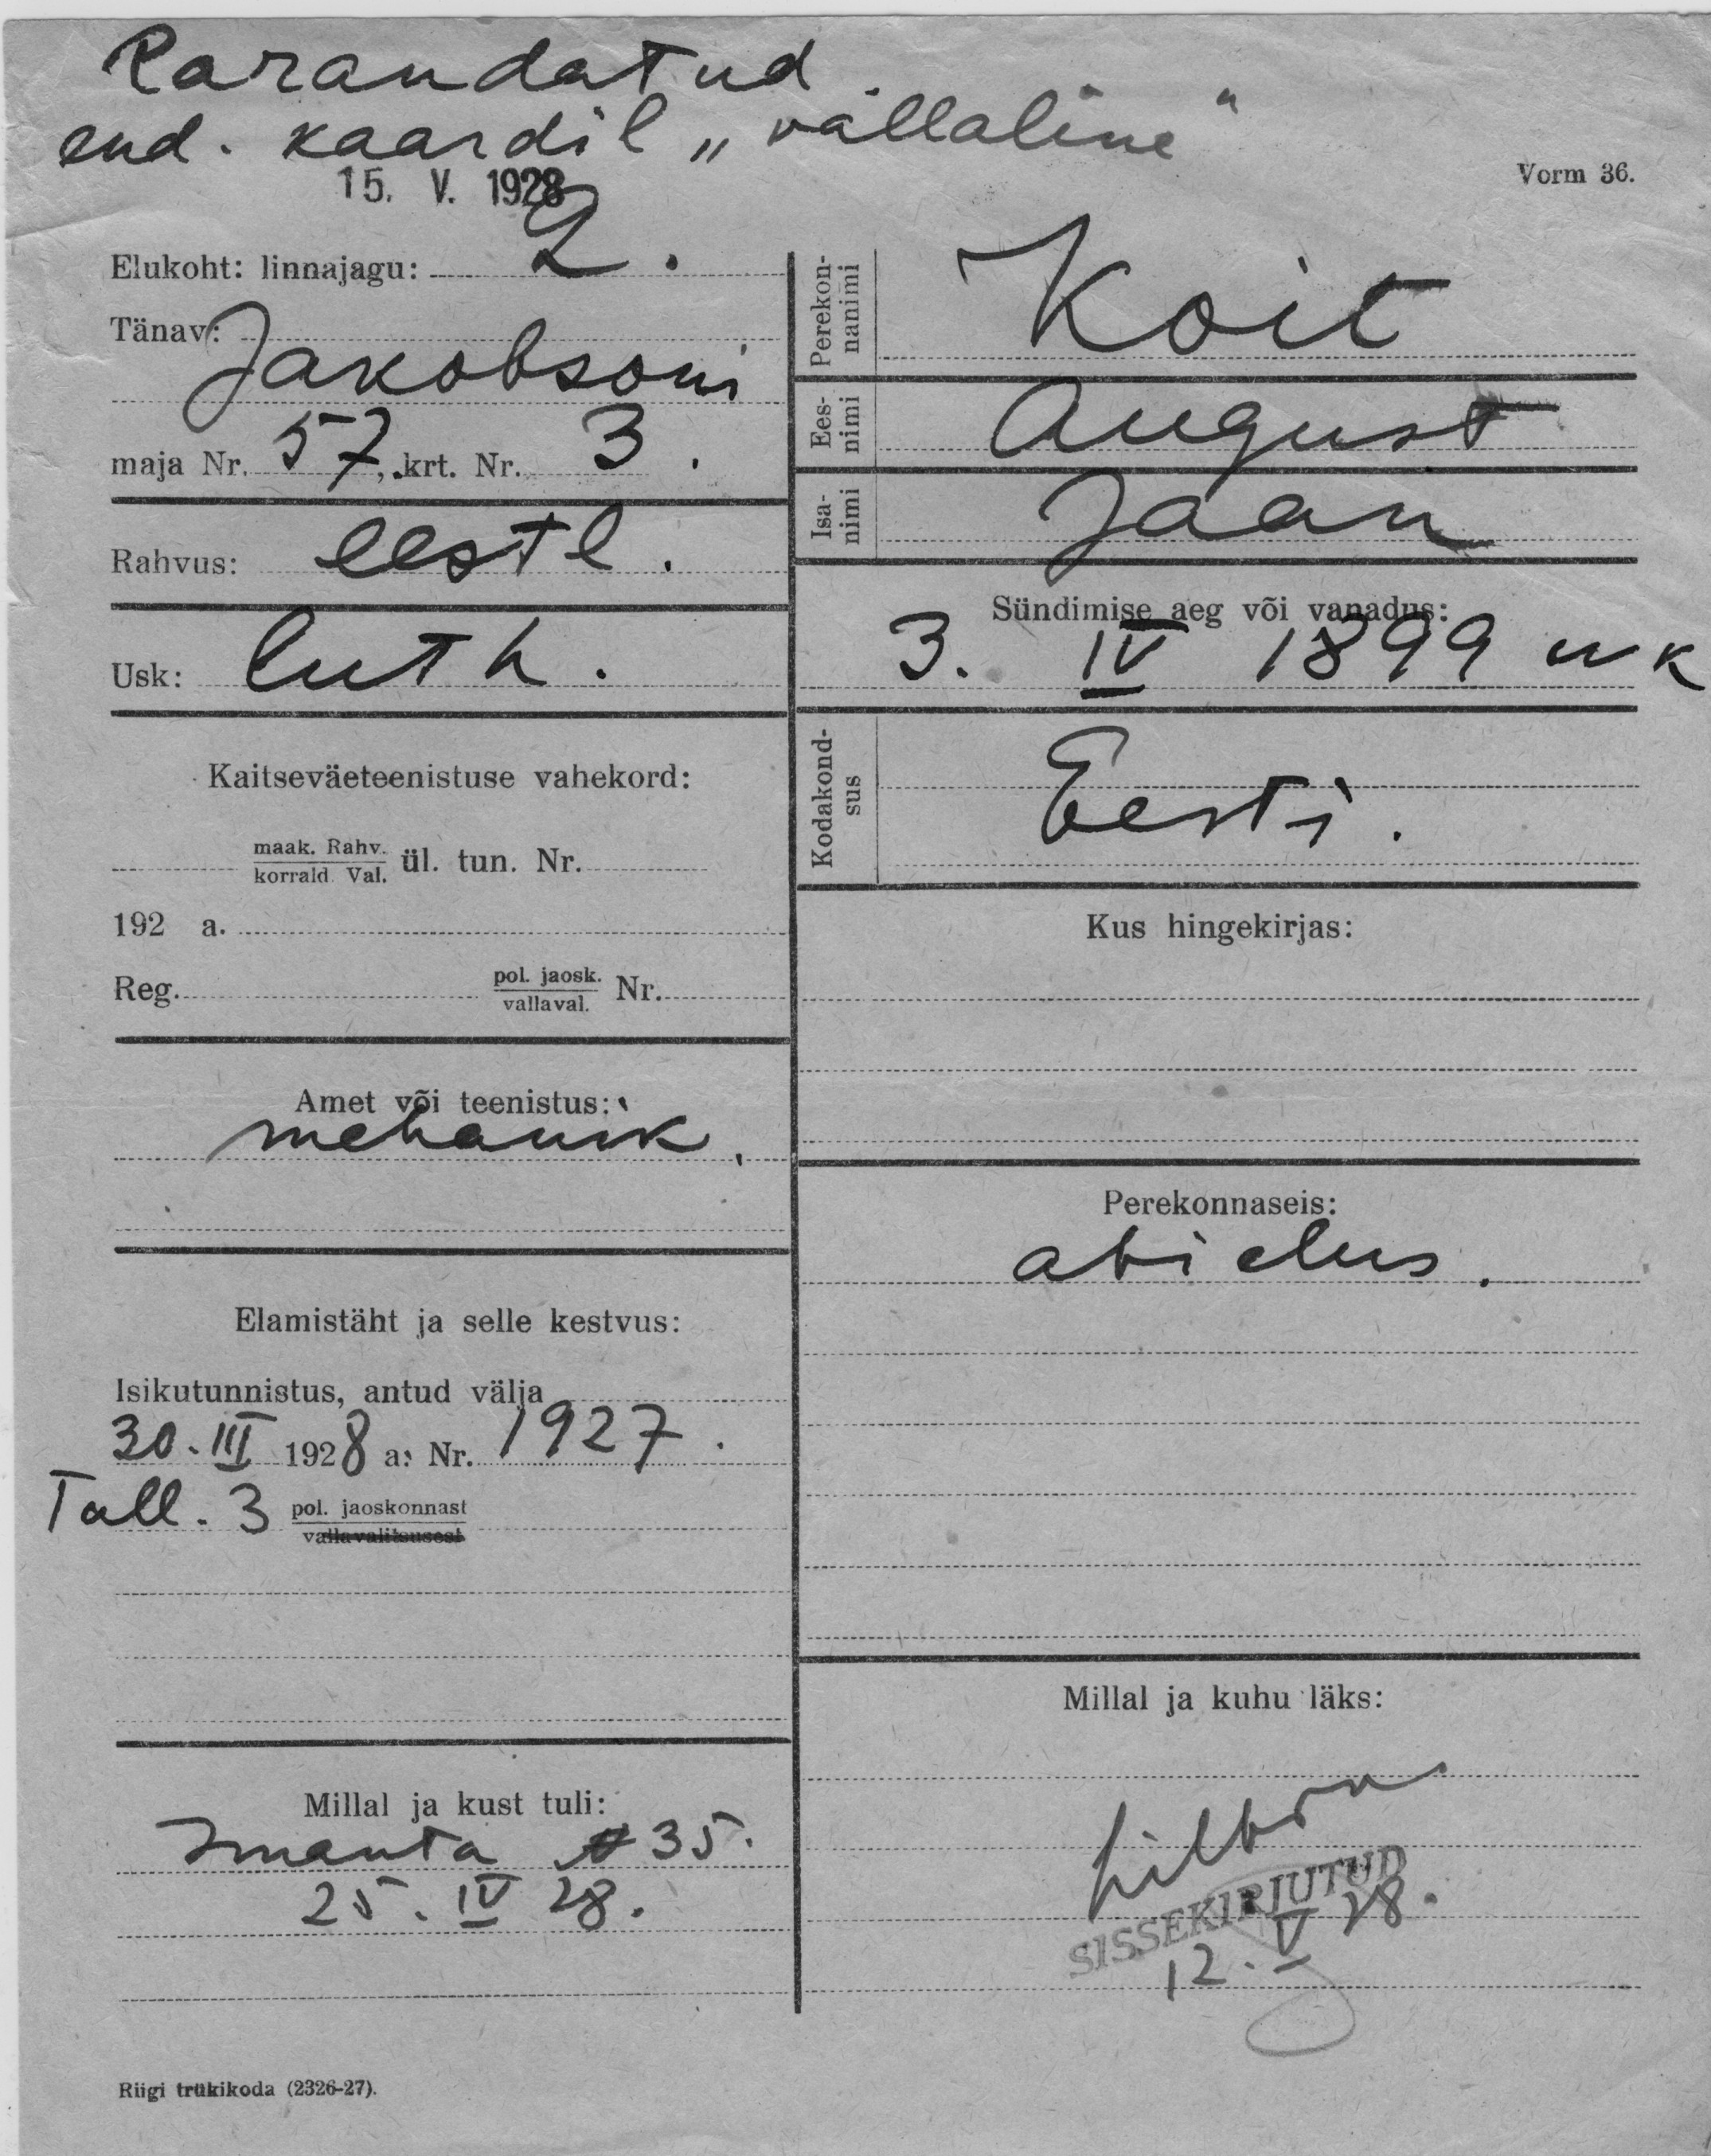 Parandatud
end. kaardil „vallaline"
15. V. 1928
Vorm 36.
Elukoht: linnajagu: 2.
Tänav: Jakobsoni
maja Nr. 57, krt. Nr. 3.
Rahvus: eestl.
Usk: luth.
Kaitseväeteenistuse vahekord:
maak. Rahv.
korrald. Val. ül. tun. Nr.
192 a.
Reg. pol. jaosk. Nr.
vallaval.
Amet või teenistus:
mehanik.
Elamistäht ja selle kestvus:
Isikutunnistus, antud välja
30. III 1928 a. Nr. 1927.
Tall. 3 pol. jaoskonnast
vallavalitsusest
Millal ja kust tuli:
Imanta 35.
25. IV 28.
Riigi trükikoda (2326-27).
Perekon-
nanimi
Koit
Ees-
nimi
August
Isa-
nimi
Jaan
Sündimise aeg või vanadus:
3. IV 1899 u k
Kodakond-
sus
Eesti.
Kus hingekirjas:
Perekonnaseis:
abielus.
Millal ja kuhu läks:
SISSEKIRJUTUD
12. V 28.